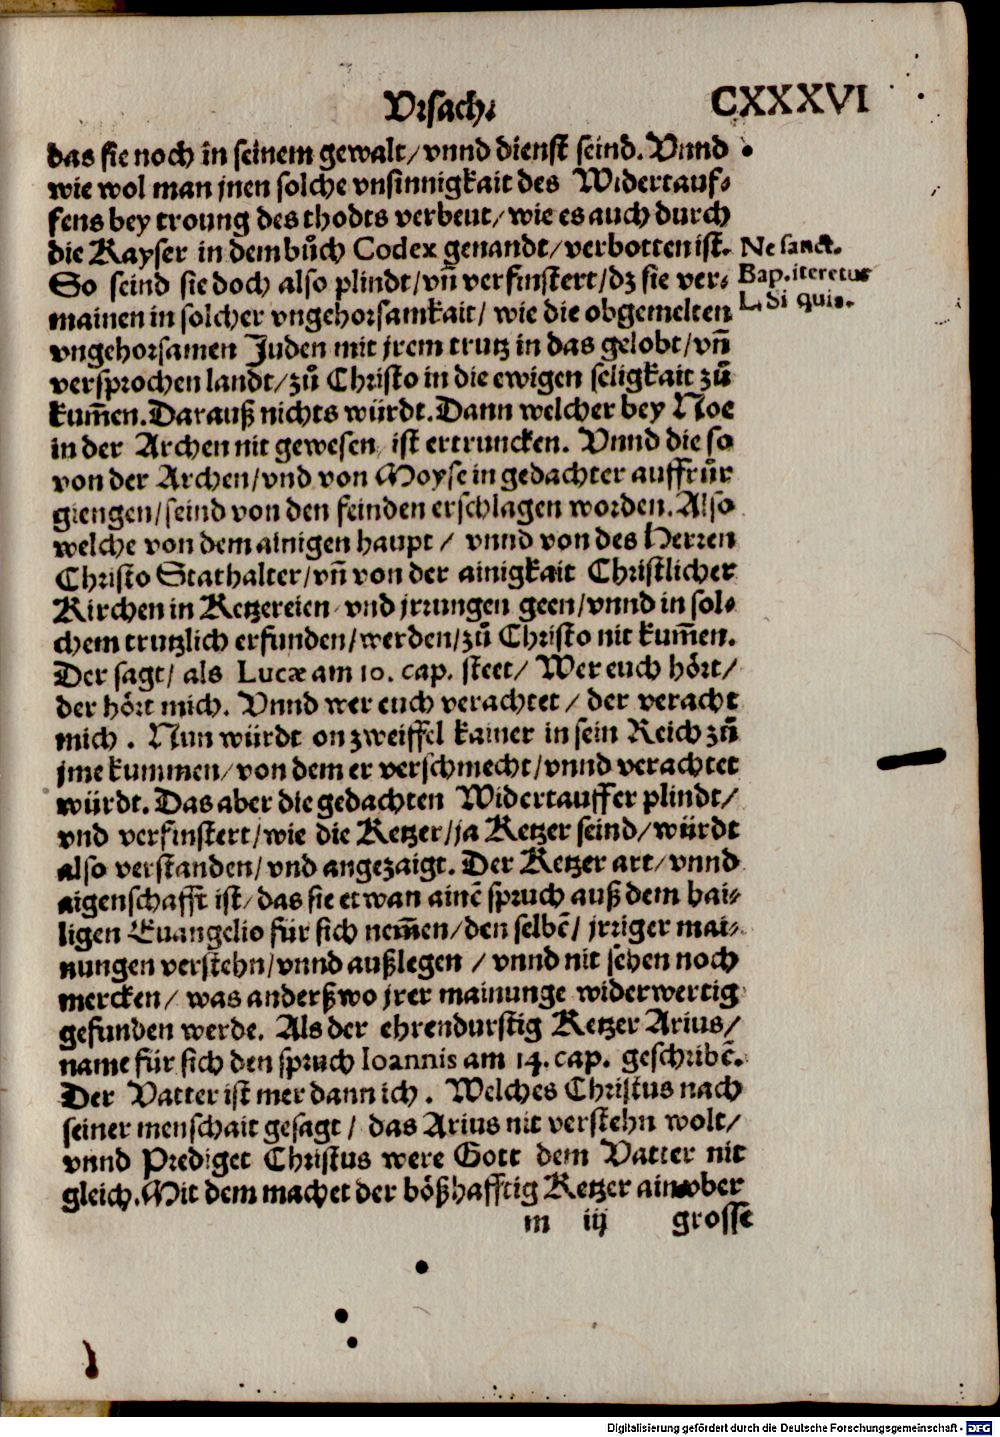 Vrsach. CXXXVI
das sie noch in seinem gewalt/vnnd dienst seind. Vnnd
wie wol man jnen solche vnsinnigkait des Widertauf-
fens bey troung des thodts verbeut/wie es auch durch
die Kayser in dem bůch Codex genandt/verbotten ist.
Ne sanct.
Bap. iteretur
L. si quis.
So seind sie doch also plindt/vñ verfinstert/dz sie ver-
mainen in solcher vngehorsamkait/wie die obgemelten
vngehorsamen Juden mit jrem trutz in das gelobt/vñ
versprochen landt/zů Christo in die ewigen seligkait zů
kum̃en. Darauß nichts würdt. Dann welcher bey Noe
in der Archen nit gewesen/ist ertruncken. Vnnd die so
von der Archen/vnd von Moyse in gedachter auffrůr
giengen/seind von den feinden erschlagen worden. Also
welche von dem ainigen haupt/vnnd von des Herren
Christo Stathalter/vñ von der ainigkait Christlicher
Kirchen in Ketzereien vnd jrrungen geen/vnnd in sol-
chem trutzlich erfunden/werden/zů Christo nit kum̃en.
Der sagt/als Lucæ am 10. cap. steet/Wer euch hört/
der hört mich. Vnnd wer euch verachtet/der veracht
mich. Nun würdt on zweiffel kainer in sein Reich zů
jme kummen/von dem er verschmecht/vnnd verachtet
würdt. Das aber die gedachten Widertauffer plindt/
vnd verfinstert/wie die Ketzer/ja Ketzer seind/würdt
also verstanden/vnd angezaigt. Der Ketzer art/vnnd
aigenschafft ist/das sie etwan ainẽ spruch auß dem hai-
ligen Euangelio für sich nem̃en/den selbẽ/jrriger mai-
nungen verstehn/vnnd außlegen/vnnd nit sehen noch
mercken/was anderßwo jrer mainunge widerwertig
gefunden werde. Als der ehrendurstig Ketzer Arius/
name für sich den spruch Ioannis am 14. cap. geschribẽ.
Der Vatter ist mer dann ich. Welches Christus nach
seiner menschait gesagt/das Arius nit verstehn wolt/
vnnd Prediget Christus were Gott dem Vatter nit
gleich. Mit dem machet der bößhafftig Ketzer ain vber
m iij grosse
Digitalisierung gefördert durch die Deutsche Forschungsgemeinschaft - DFG